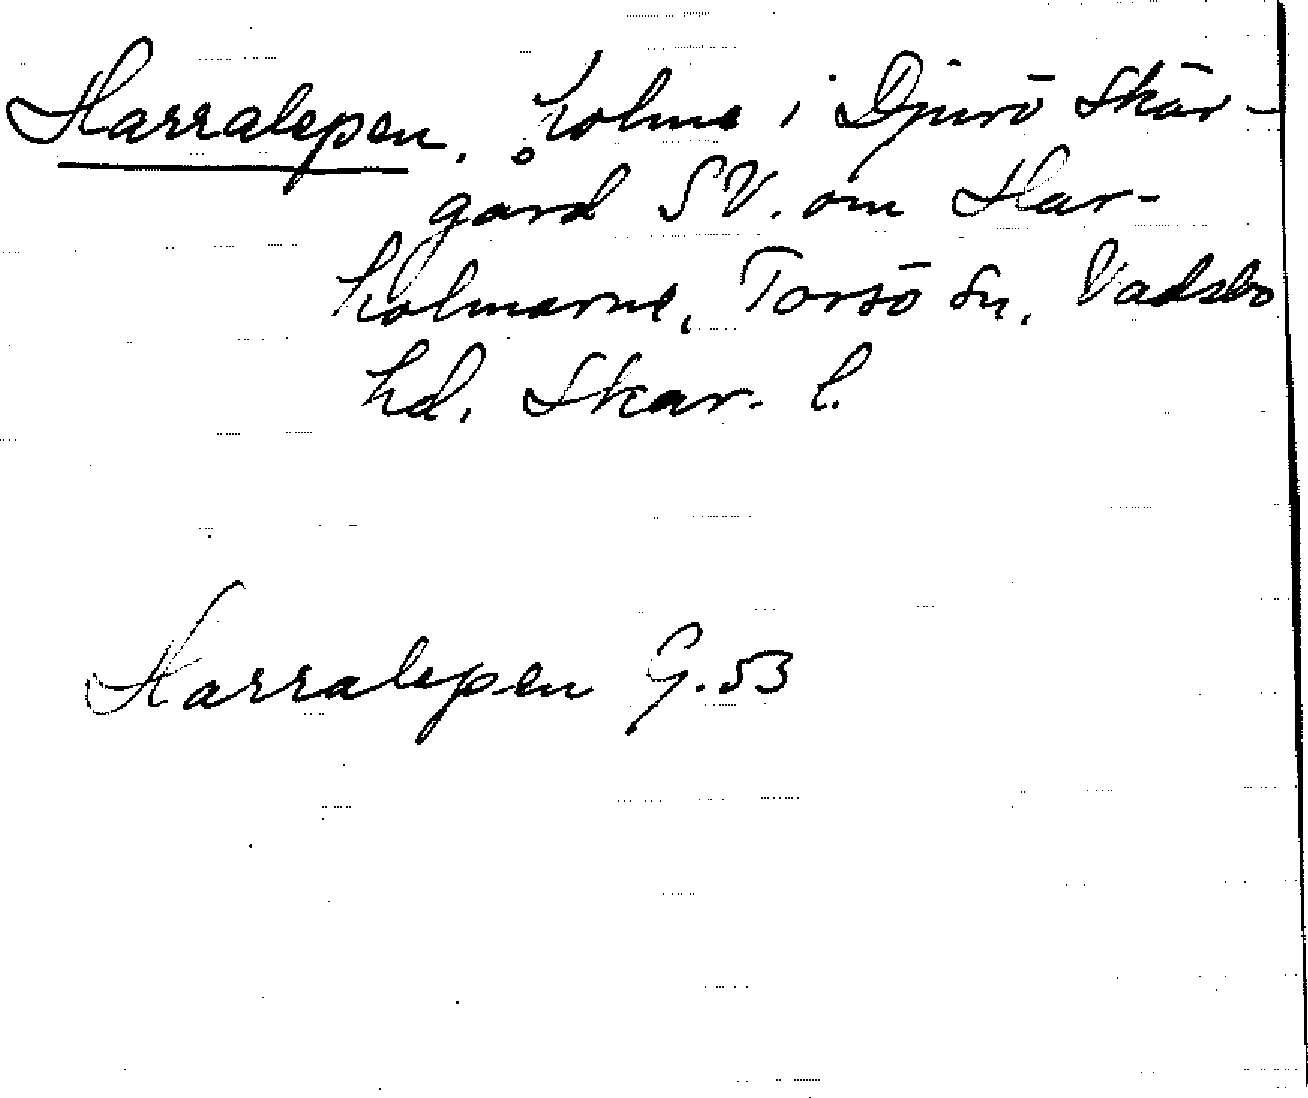 Harralepen. holme i Djurö Skär-
gård SV. om Har-
holmarne, Torsö sn, Vadsbo
hd. Skar. l.
Harralepen G. 53